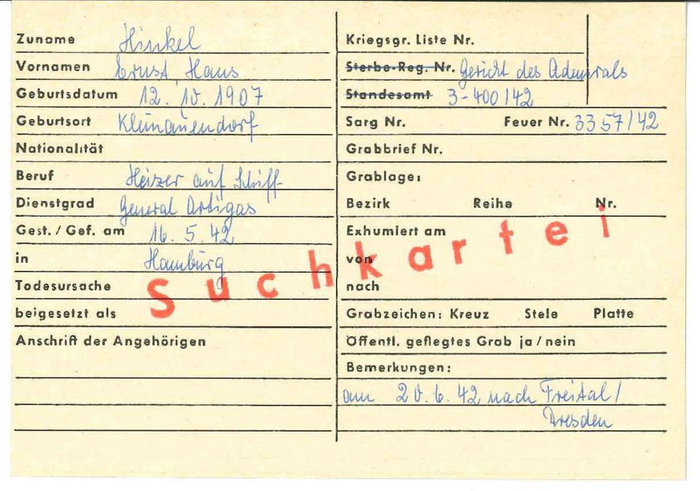 Zuname Hinkel
Vornamen Ernst Hans
Geburtsdatum 12.10.1907
Geburtsort
Nationalität
Beruf Heizer auf Schiff
Dienstgrad General Artigas
Gest./Gef. am 16.5.42
in Hamburg
Todesursache
beigesetzt als
Anschrift der Angehörigen
Kriegsgr. Liste Nr.
Sterbe-Reg. Nr. Gericht des Admirals
Standesamt 3-400/42
Sarg Nr. Feuer Nr. 3357/42
Grabbrief Nr.
Grablage:
Bezirk Reihe Nr.
Exhumiert am
von
nach
Grabzeichen: Kreuz Stele Platte
Öffentl. geflegtes Grab ja/nein
Bemerkungen:
am 20.6.42 nach Freital/
Dresden
Suchkartei